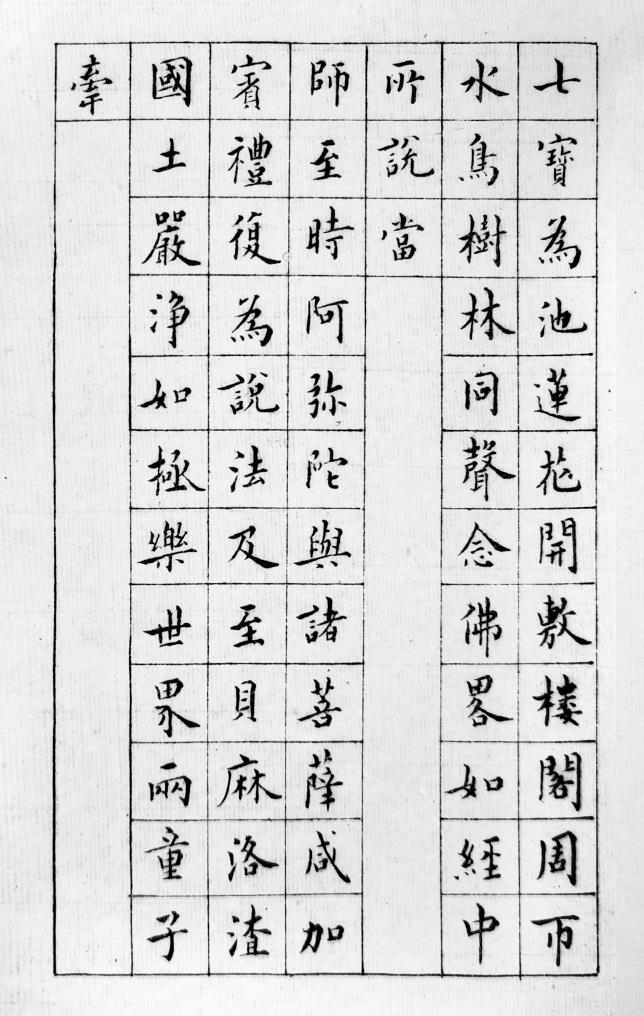 七寶為池蓮花開敷樓閣周帀
水鳥樹林同聲念佛畧如經中
所說當
師至時阿弥陀與諸菩薩咸加
賓禮復為說法及至貝麻洛渣
國土嚴淨如極樂世界兩童子
牽